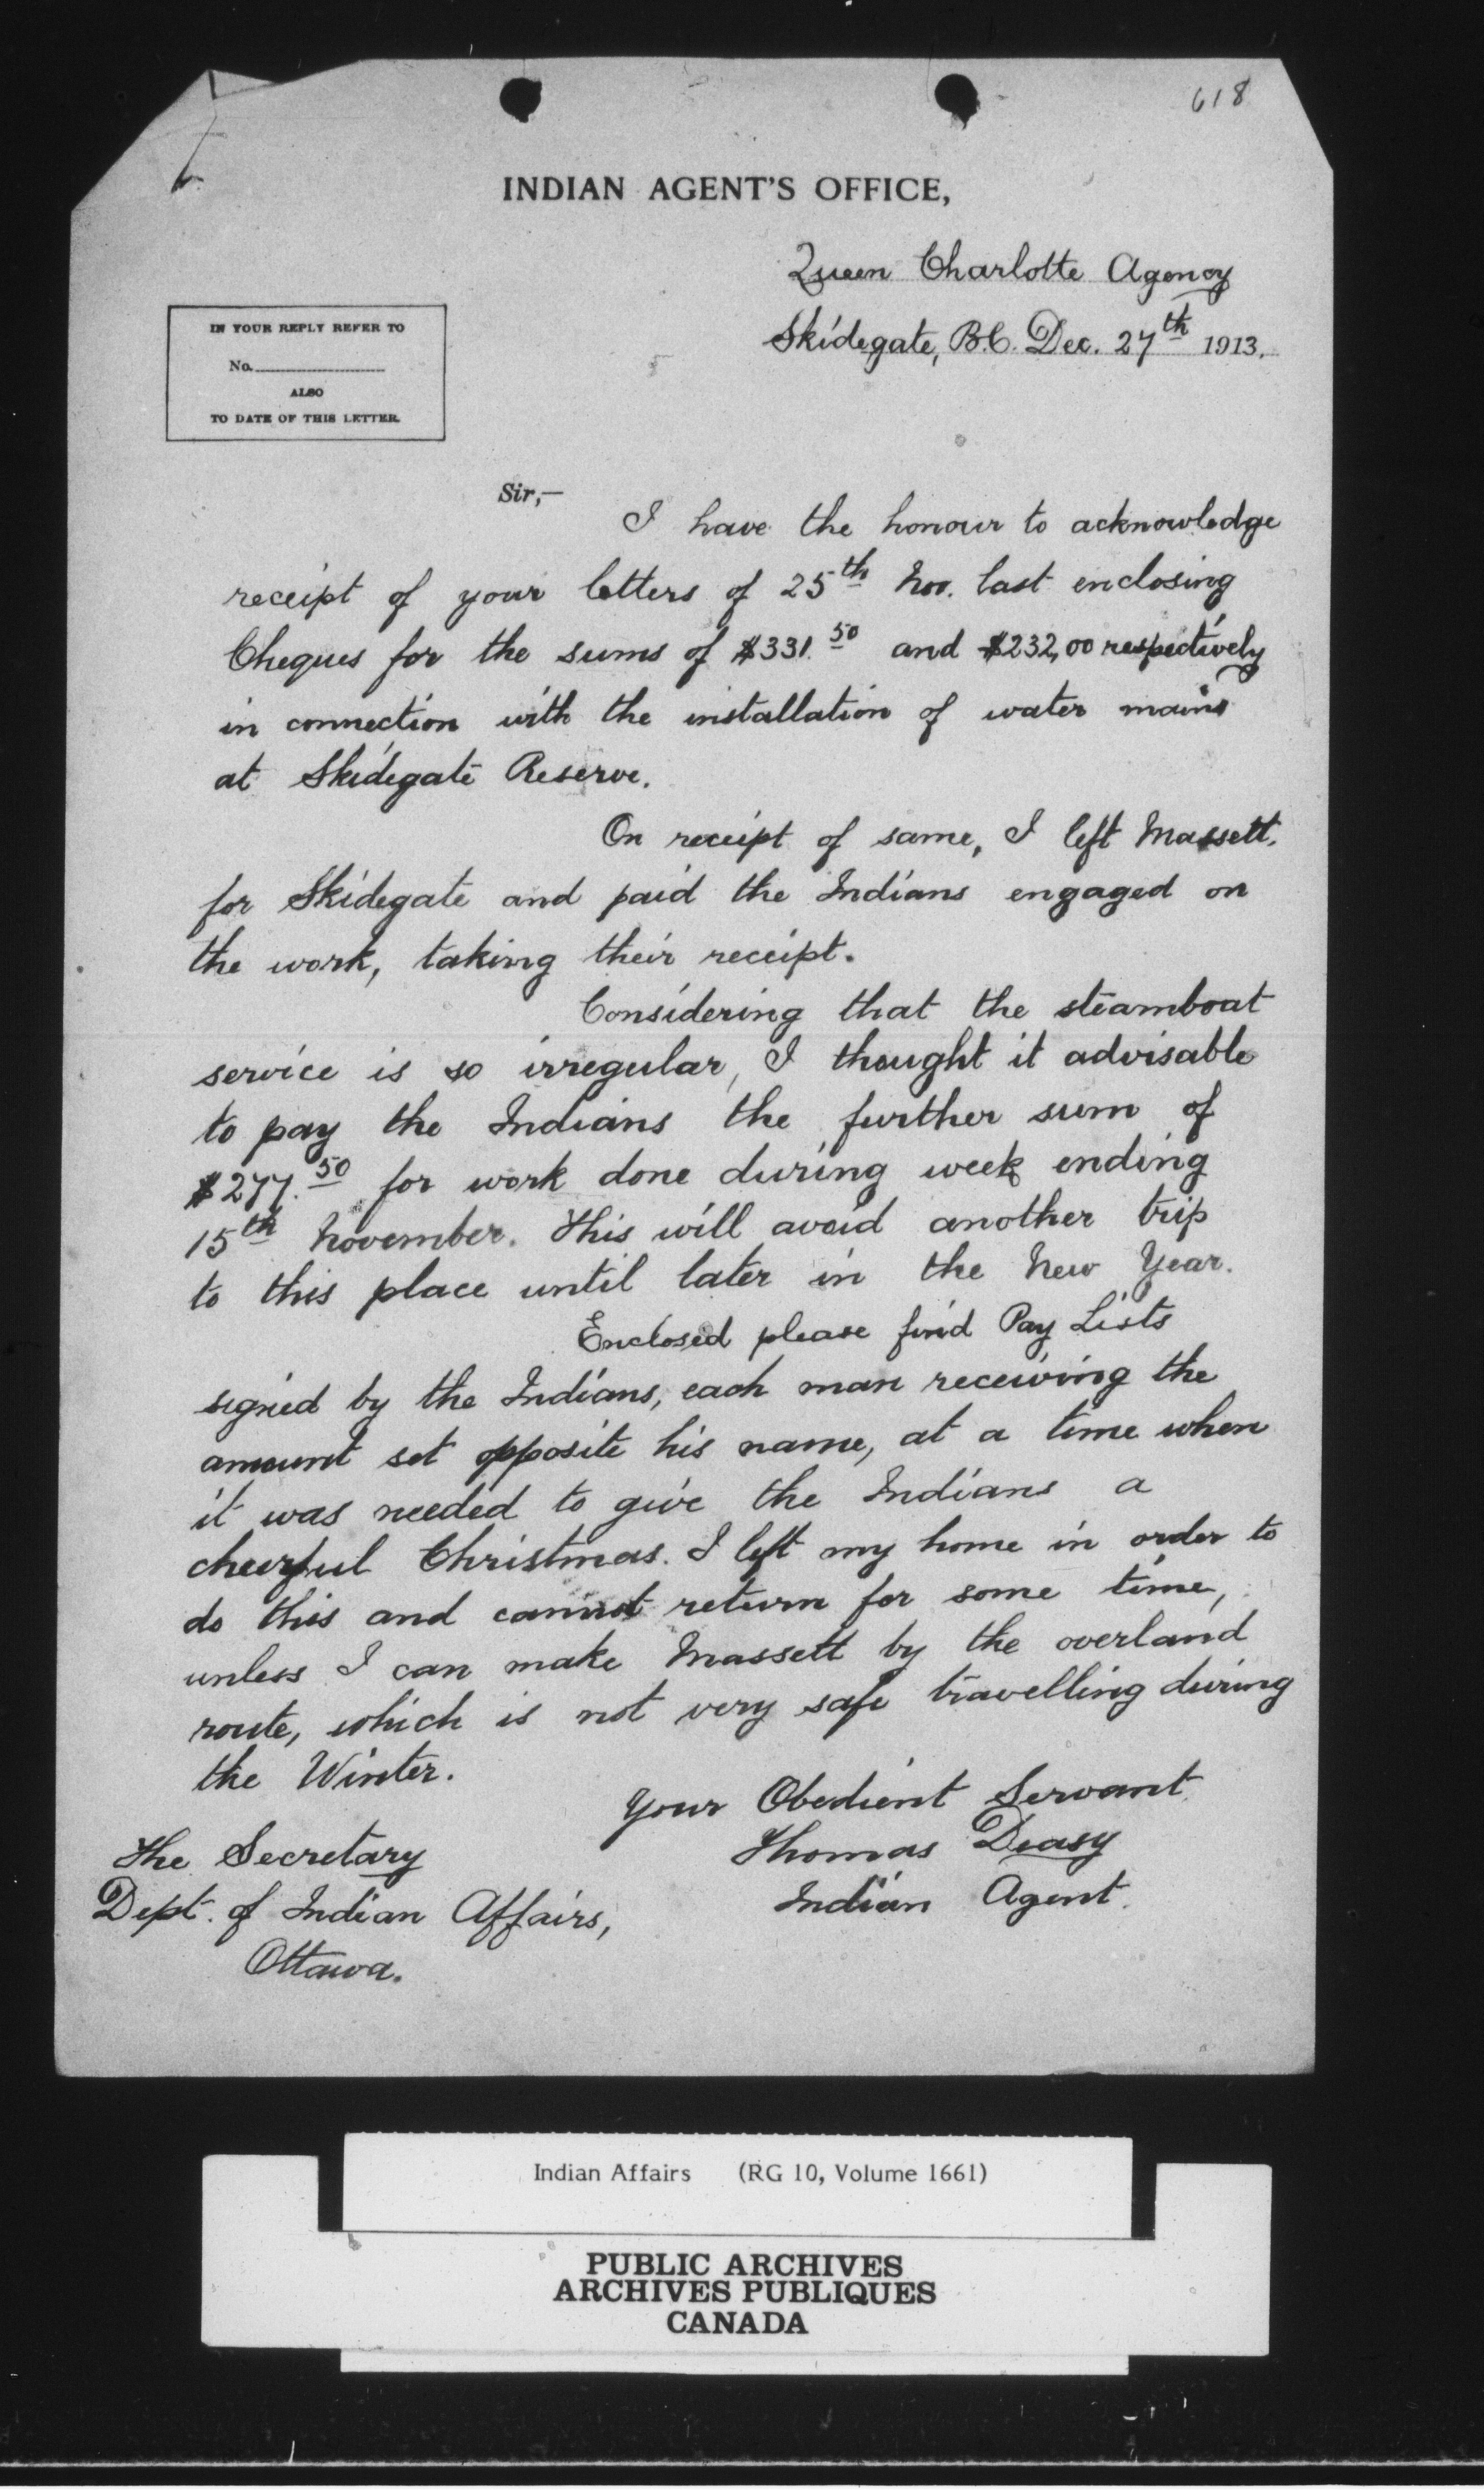 618
INDIAN AGENT'S OFFICE,
Queen Charlotte Agency
Skidegate, B.C. Dec. 27th 1913.
IN YOUR REPLY REFER TO
No.
ALSO
TO DATE OF THIS LETTER.
Sir,—
I have the honour to acknowledge
receipt of your letters of 25th Nov. last enclosing
Cheques for the sums of $331.50 and $232,00 respectively
in connection with the installation of water mains
at Skidegate Reserve.
On receipt of same, I left Massett.
for Skidegate and paid the Indians engaged on
the work, taking their receipt.
Considering that the steamboat
service is so irregular, I thought it advisable
to pay the Indians the further sum of
$277.50 for work done during week ending
15th November. This will avoid another trip
to this place until later in the New Year.
Enclosed please find Pay Lists
signed by the Indians, each man receiving the
amount set opposite his name, at a time when
it was needed to give the Indians a
cheerful Christmas. I left my home in order to
do this and cannot return for some time,
unless I can make Massett by the overland
route, which is not very safe travelling during
the Winter.
Your Obedient Servant
Thomas Deasy
Indian Agent.
The Secretary
Dept. of Indian Affairs,
Ottawa.
Indian Affairs (RG 10, Volume 1661)
PUBLIC ARCHIVES
ARCHIVES PUBLIQUES
CANADA